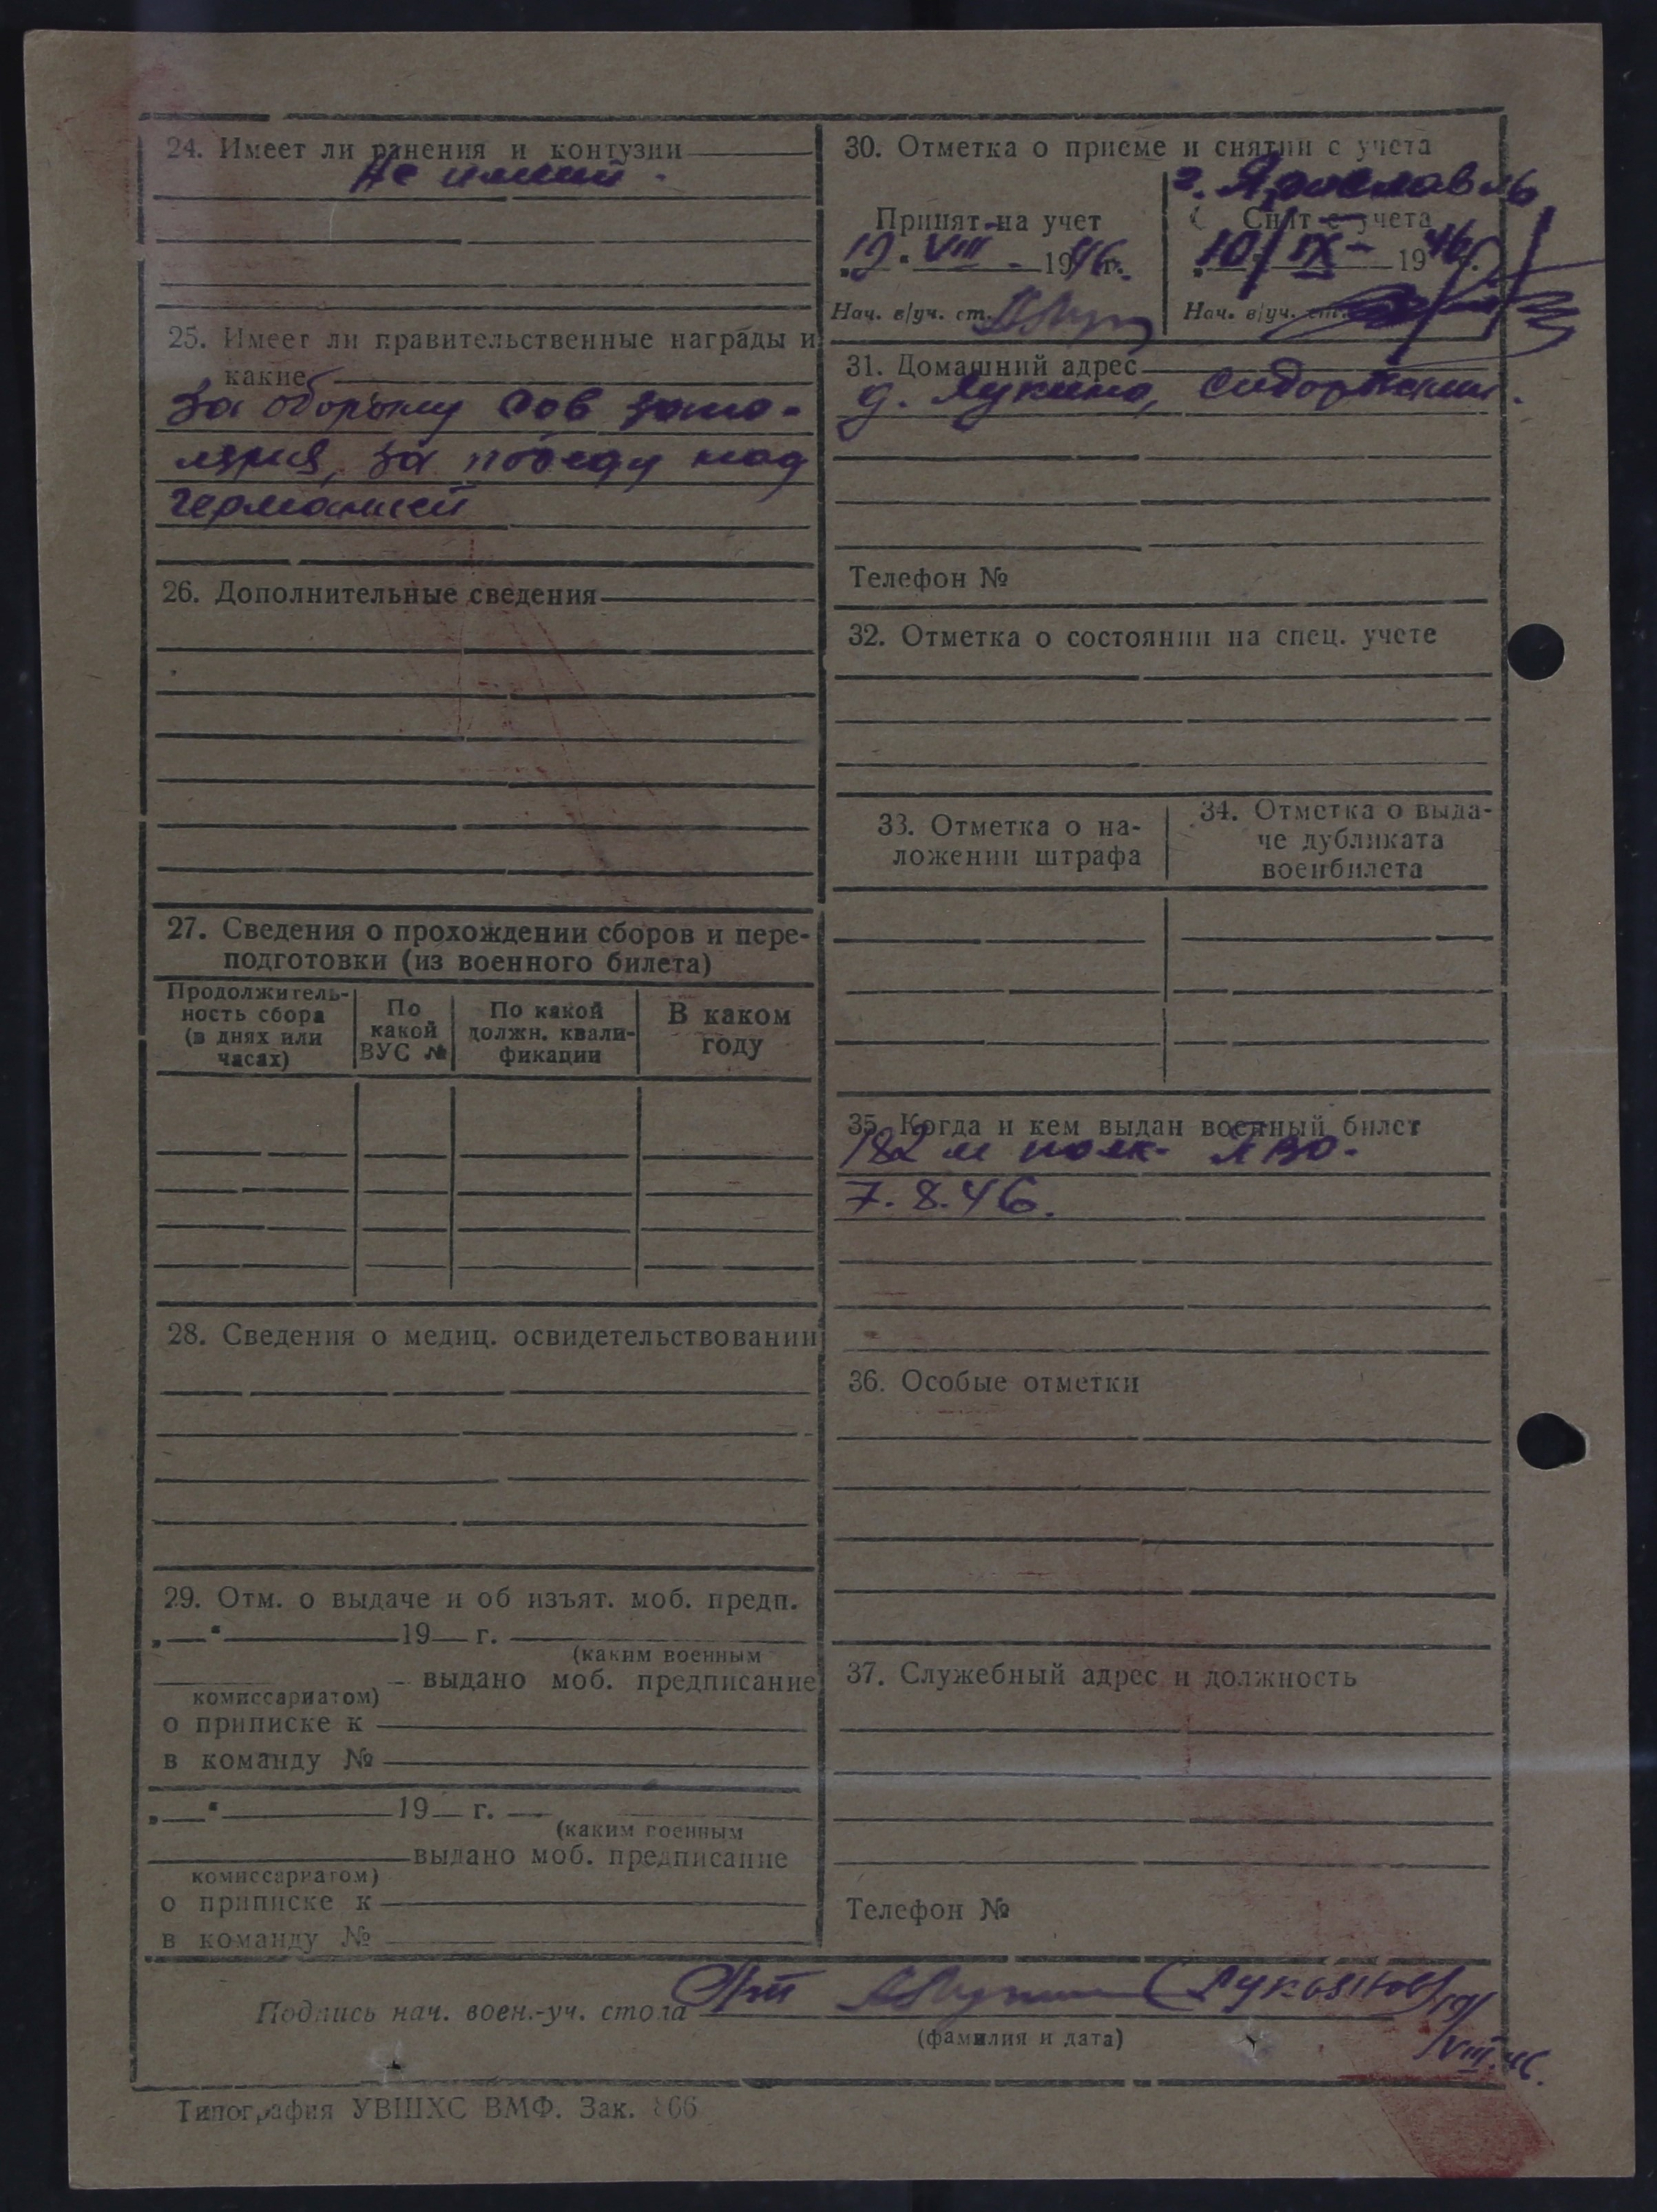 24. Имеет ли ранения и контузии
Не имеет.
25. Имеет ли правительственные награды и
какие
За оборону Сов запо-
лярия, за победу над
германией
26. Дополнительные сведения
27. Сведения о прохождении сборов и пере-
подготовки (из военного билета)
Продолжитель-
ность сбора
(в днях или
часах)
По
какой
ВУС №
По какой
должн. квали-
фикации
В каком
году
28. Сведения о медиц. освидетельствовании
29. Отм. о выдаче и об изъят. моб. предп.
„ “ 19 г.
(каким военным
выдано моб. предписание
комиссариатом)
о приписке к
в команду №
„ “ 19 г.
(каким военным
выдано моб. предписание
комиссариатом)
о приписке к
в команду №
30. Отметка о приеме и снятии с учета
г. Ярославль
Принят на учет
„19“ VIII 1946 г.
Нач. в/уч. ст.
Снят с учета
„10/ IX 1946 г.
Нач. в/уч. ст.
31. Домашний адрес
д. Лукино,
Телефон №
32. Отметка о состоянии на спец. учете
33. Отметка о на-
ложении штрафа
34. Отметка о выда-
че дубликата
военбилета
35. Когда и кем выдан военный билет
182 м полк. ЯВО.
7.8.46.
36. Особые отметки
37. Служебный адрес и должность
Телефон №
Подпись нач. воен.-уч. стола
19/
VIII.46.
(фамилия и дата)
Типография УВШХС ВМФ. Зак. 866